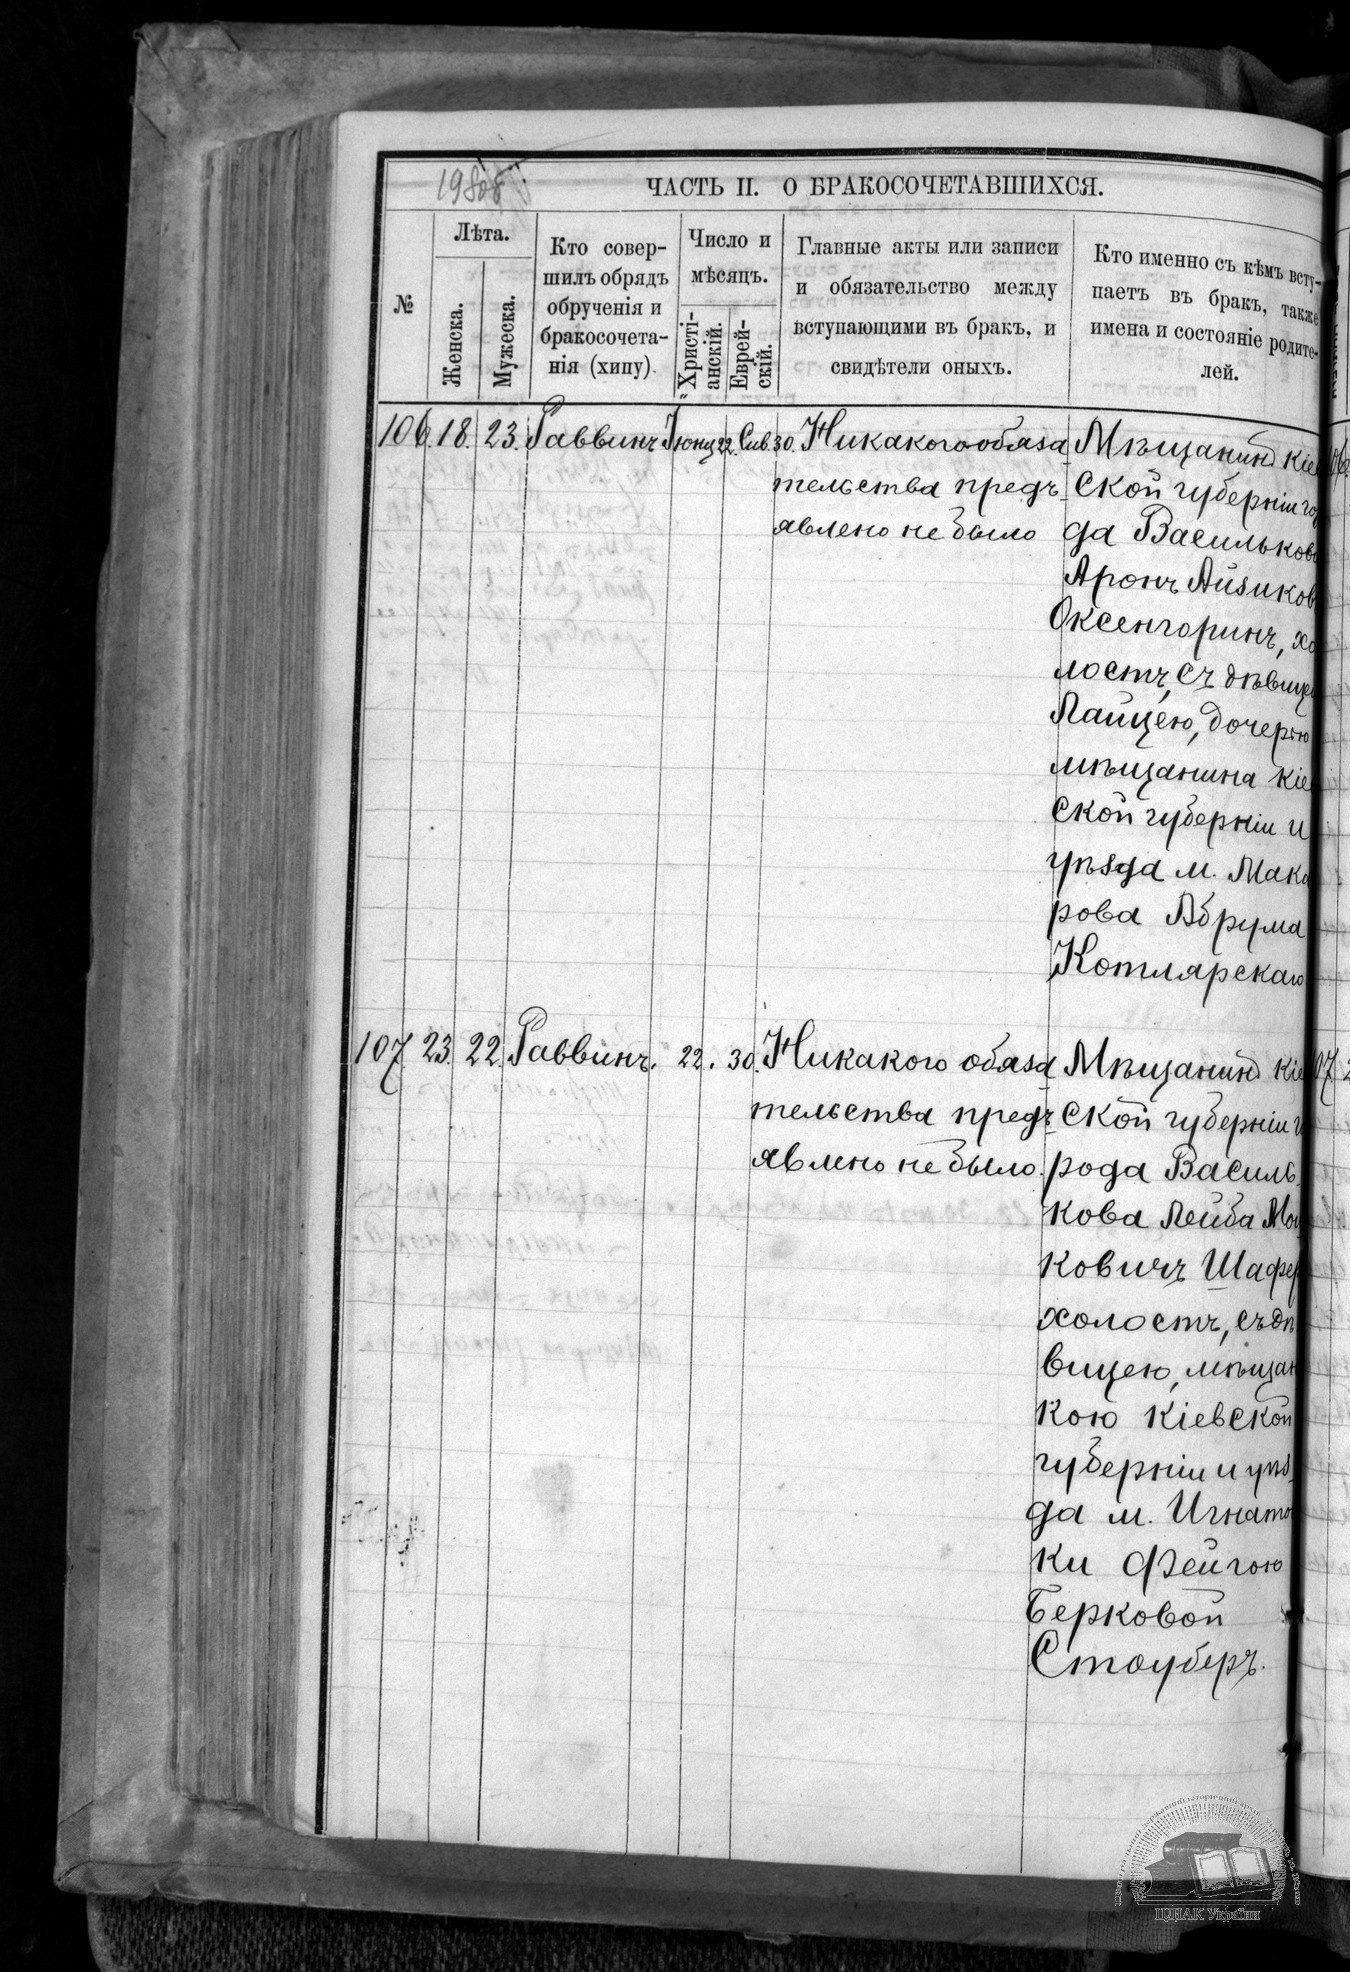 ЧАСТЬ II. О БРАКОСОЧЕТАВШИХСЯ.
№
Лѣта.
Женска.
Мужеска.
Кто совер-
шилъ обрядъ
обрученія и
бракосочета-
нія (хипу).
Число и
мѣсяцъ.
Христі-
анскій.
Еврей-
скій.
Главные акты или записи
и обязательство между
вступающими въ бракъ, и
свидѣтели оныхъ.
Кто именно съ кѣмъ всту-
паетъ въ бракъ, также
имена и состояніе родите-
лей.
106. 18. 23. Раввинъ Іюня 22. Сив. 30.
Никакого обяза
тельства предъ-
явлено не было
Мѣщанинъ Кіе
ской губерніи го
да Василькова
Аронъ Айзиков
Оксенгоринъ, хо
лостъ, съ дѣвице
Лайцею, дочерью
мѣщанина Кіе
ской губерніи и
уѣзда м. Мака
рова Абрума
Котлярскаго
107. 23. 22. Раввинъ. 22. 30.
Никакого обяза
тельства предъ-
явлено не было.
Мѣщанинъ Кіе
ской губерніи г
рода Василь-
кова Лейба Мош
ковичъ Шафер
холостъ, съ дѣ
вицею, мѣщан
кою Кіевской
губерніи и уѣз-
да м. Игнато
ки Фейгою
Берковой
Стоуберъ.
ЦДІАК України